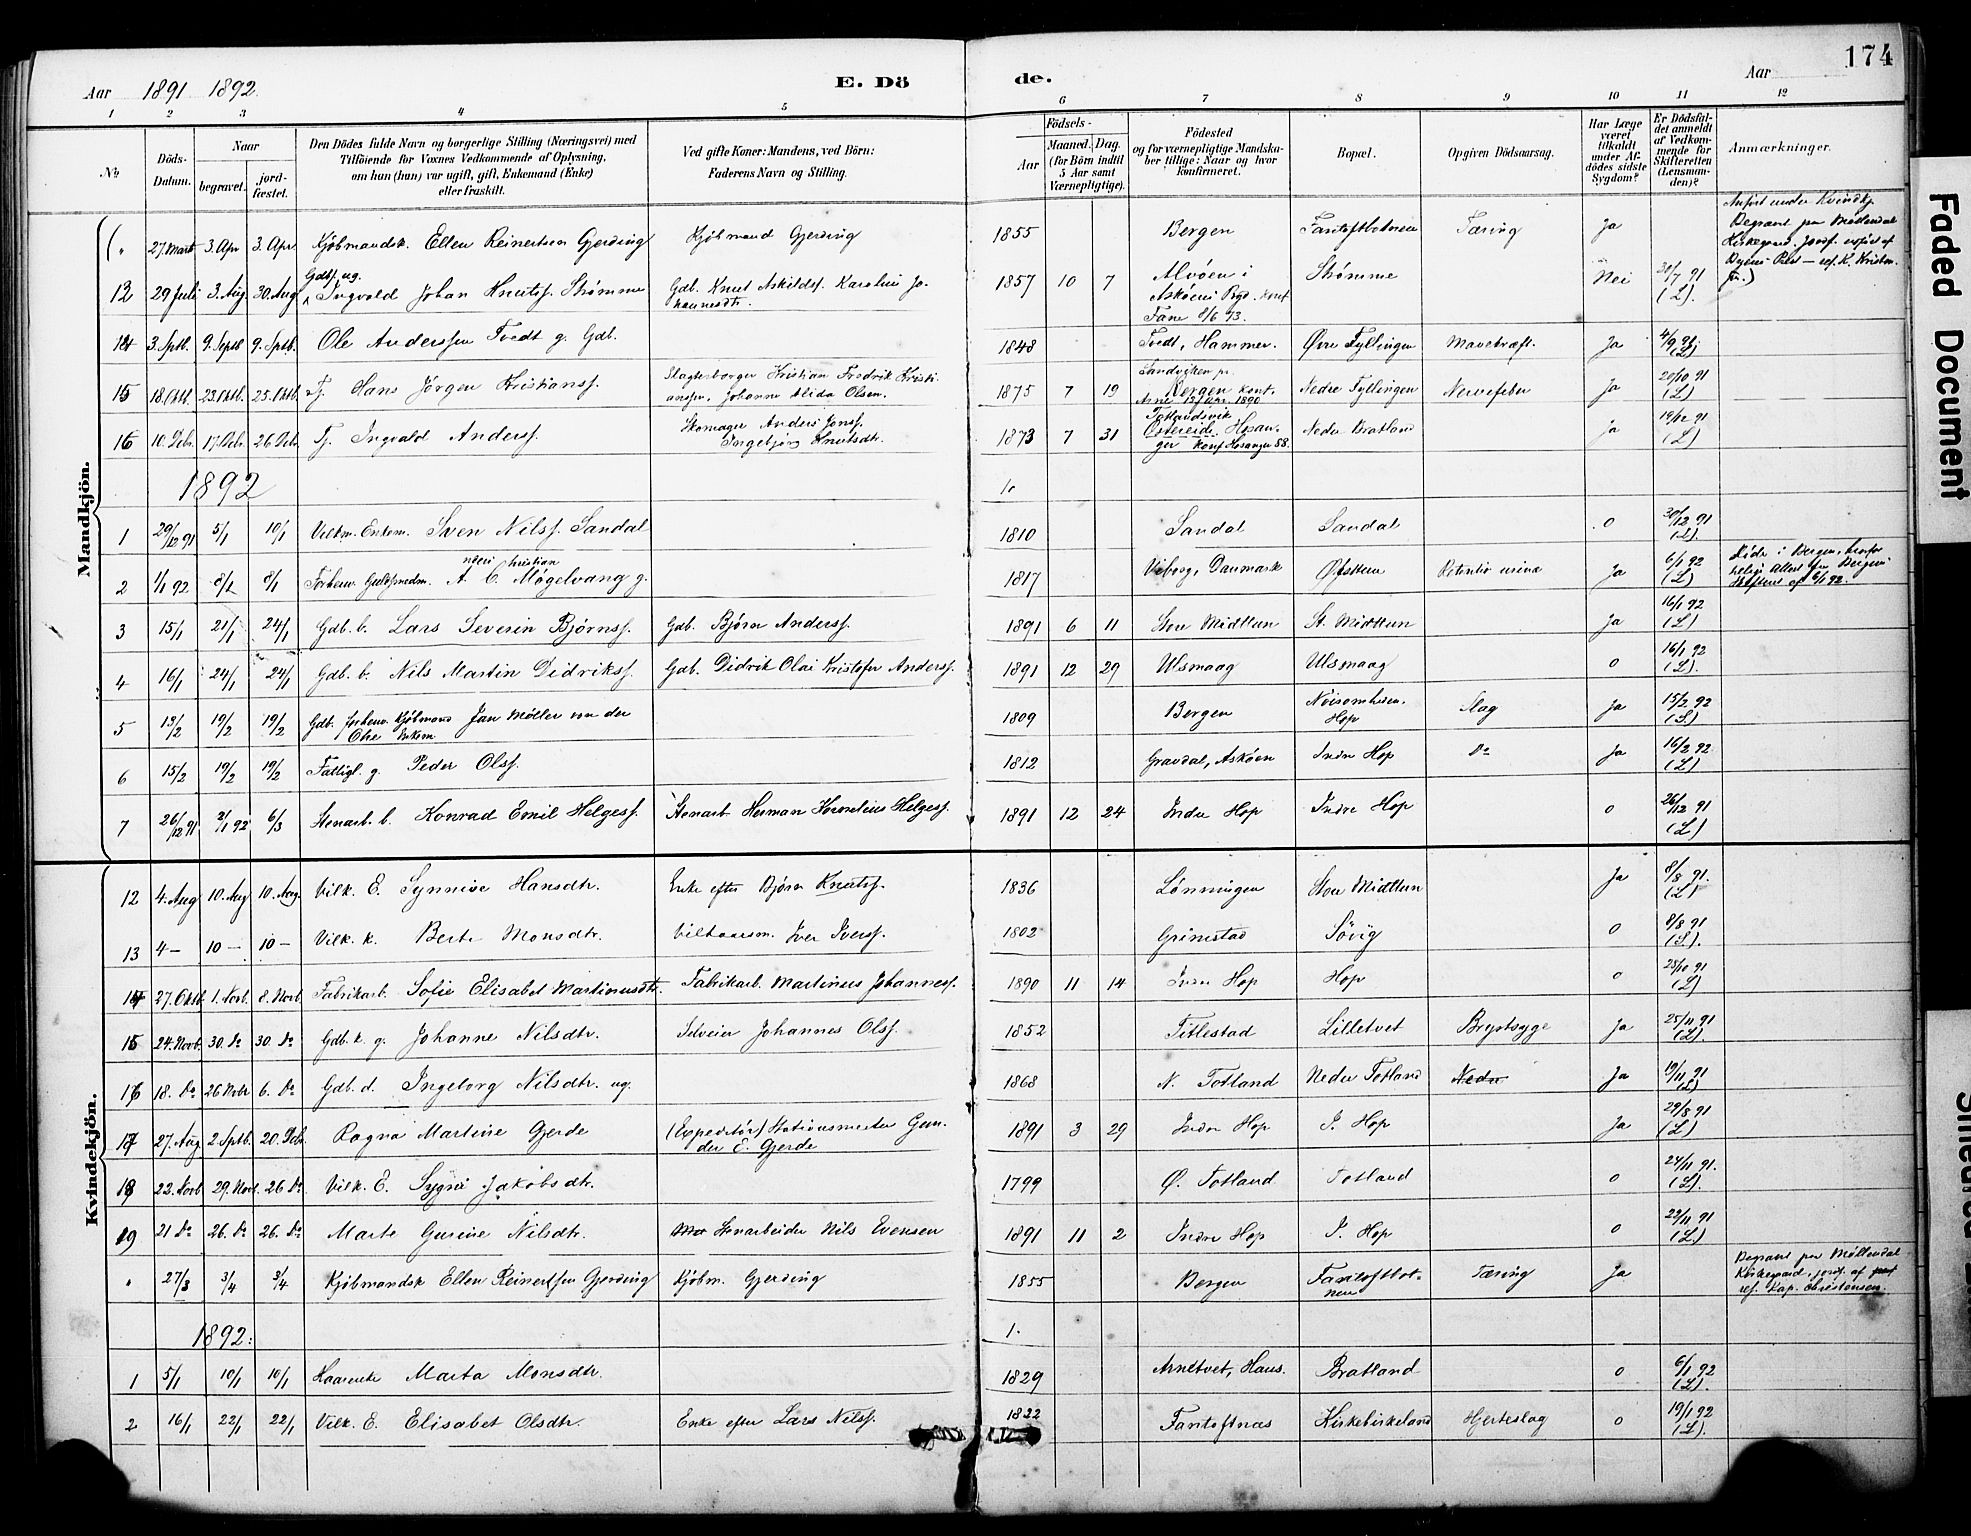 174
Aar 1891 1892. E. Dö de. Aar
1 2 3 4 5 6 7 8 9 10 11 12
No
Döds-Datum.
Naar
begravet.
jord-fæstet.
Den Dödes fulde Navn og borgerlige Stilling (Næringsvei) med
Tilföiende for Voxnes Vedkommende af Oplysning,
om han (hun) var ugift, gift, Enkemand (Enke)
eller fraskilt.
Ved gifte Koner: Mandens, ved Börn:
Faderens Navn og Stilling.
Födsels-
Aar
Maaned. Dag.
(for Börn indtil
5 Aar samt
Værnepligtige).
Födested
og for værnepligtige Mandska-
ber tillige: Naar og hvor
konfirmeret.
Bopæl.
Opgiven Dödsaarsag.
Har Læge
været
tilkaldt
under Af-
dödes sidste
Sygdom?
Er Dödsfal-
det anmeldt
af Vedkom-
mende for
Skifteretten
(Lensman-
den)?
Anmærkninger.
Mandkjön.
( " 27. Marts 3. Apr 3. Apr Kjöbmandsk. Ellen Reinertsen Gjerding Kjöbmand Gjerding 1855 Bergen Fantoftbotnen Tæring Ja Anfört under Kvindkj. Begravt paa Möllendal Kirkegaard.
13 29 Juli 3. Aug. 30. Aug Gdbs. ug. Ingvald Johan Knuts. Strömme Gdb. Knut Askilds. Karolini Johannesdtr. 1857 10 7 Alvöen i Asköens Pgd. konf. Fane 8/6 73. Strömme Nei 30/7 91 (L).
14 3. Sptb. 9. Septb 9. Sptb. Ole Anderssen Tvedt g. Gdb. 1848 Tvedt, Hammer. Övre Fyllingen Mavekræft. Ja 4/9 91. (L)
15 18. Oktb. 23. Oktb. 25. Oktb. Tj. Hans Jörgen Kristians. Slagterborger Kristian Fredrik Kristianssen, Johanne Alida Olsen. 1875 7 19 Sandviken pr. Bergen konf. Arne 1890 Nedre Fyllingen Nervefeber Ja 20/10 91 (L)
16 10. Dcbr. 17. Dcbr. 26 Dcb. Tj. Ingvald Anders. Skomager Anders Jons. Ingebjörg Knutsdtr. 1873 7 31 Totlandsvik Ostereide, Hosanger konf Hosanger 88. Nedre Bratland Ja 19/12 91 (L)
1892
1 29/12 91 5/1 10/1 Vilkm. Enkem. Sven Nilss. Sandal 1810 Sandal Sandal o 30/12 91 (L).
2 1/1 92 8/1 8/1 Forhenv. Guldsmedm. A. C. Mögelvang g. 1817 Viborg, Danmark Öfsttun Retentio urinæ Ja 6/1 92 (L)
3 15/1 21/1 24/1 Gdb. b. Lars Severin Björns. Gdb. Björn Anders. 1891 6 11 Store Midttun St. Midttun Ja 16/1 92 (L)
4 16/1 24/1 24/1 Gdb. b. Nils Martin Didriks. Gdb. Didrik Olai Kristofer Anders. 1891 12 29 Ulsmaag Ulsmaag o 16/1 92 (L).
5 13/2 19/2 19/2 Gdb. forhenv. Kjöbmand Jan Möller von der Ohe Enkem. 1809 Bergen Nöisomheden, Hop Slag Ja 15/2 92 (L)
6 15/2 19/2 19/2 Fattigl. g. Peder Ols. 1812 Gravdal, Asköen Indre Hop Do Ja 16/2 92 (L)
7 26/12 91 2/1 92 6/3 Stenarb. b. Konrad Emil Helges. Stenarb Herman Kornelius Helges. 1891 12 24 Indre Hop Indre Hop o 26/12 91 (L)
Kvindekjön.
12 4. Aug 10. Aug 10. Aug. Vilk. E. Synnive Hansdtr. Enke efter Björn Knuts. 1836 Lönningen Store Midttun Ja 8/8 91. (L)
13 4 — 10 — 10 — Vilk. k. Berte Monsdtr. Vilkaarsm. Iver Ivers. 1802 Grimstad Sövig o 8/8 91 (L).
14 27. Oktb. 1. Novb. 8. Novb. Fabrikarb. Sofie Elisabet Martinusdtr. Fabrikarb. Martinus Johannes. 1890 11 14 Indre Hop Hop o 28/10 91 (L)
15 24. Novb. 30. Do 30. Do Gdb. k. g. Johanne Nilsdtr. Selveier Johannes Ols. 1852 Titlestad Lilletvet Brystsyge Ja 25/11 91 (L).
16 18. Do 26 Novbr 6. Do Gdb. d. Ingeborg Nilsdtr. ug. 1868 N. Totland Nedre Totland Nedre Ja 19/11 91 (L)
17 27. Aug 2. Sptb. 20. Dcbr Ragna Martine Gjerde (Expeditör) Stationsmester Gunder E. Gjerde 1891 3 29 Indre Hop I. Hop Ja 29/8 91 (L)
18 22. Novb 29. Novb. 26 Do Vilk. E. Sygni Jakobsdtr. 1799 Ö. Totland Totland o 24/11 91. (L).
19 21 Do 26. Do 26. Do Marte Gurine Nilsdtr. Stenarbeider Nils Evensen 1891 11 2 Indre Hop I. Hop o 23/11 91 (L)
" 27/3 3/4 3/4 Kjöbmandsk Ellen Reinertsen Gjerding Kjöbm. Gjerding 1855 Bergen Fantoftbotnen Tæring Ja Begravt paa Möllendal Kirkegaard, jordf. af res. Kap. Christensen.
1892:
1 5/1 10/1 10/1 Marta Monsdtr. 1829 Arnetvet, Haus. Bratland o 6/1 92 (L).
2 16/1 22/1 22/1 Vilk. E. Elisabet Olsdtr. Enke efter Lars Nils. 1822 Fantoftnæs Kirkebirkeland Hjerteslag o 19/1 92 (L).
Faded Document